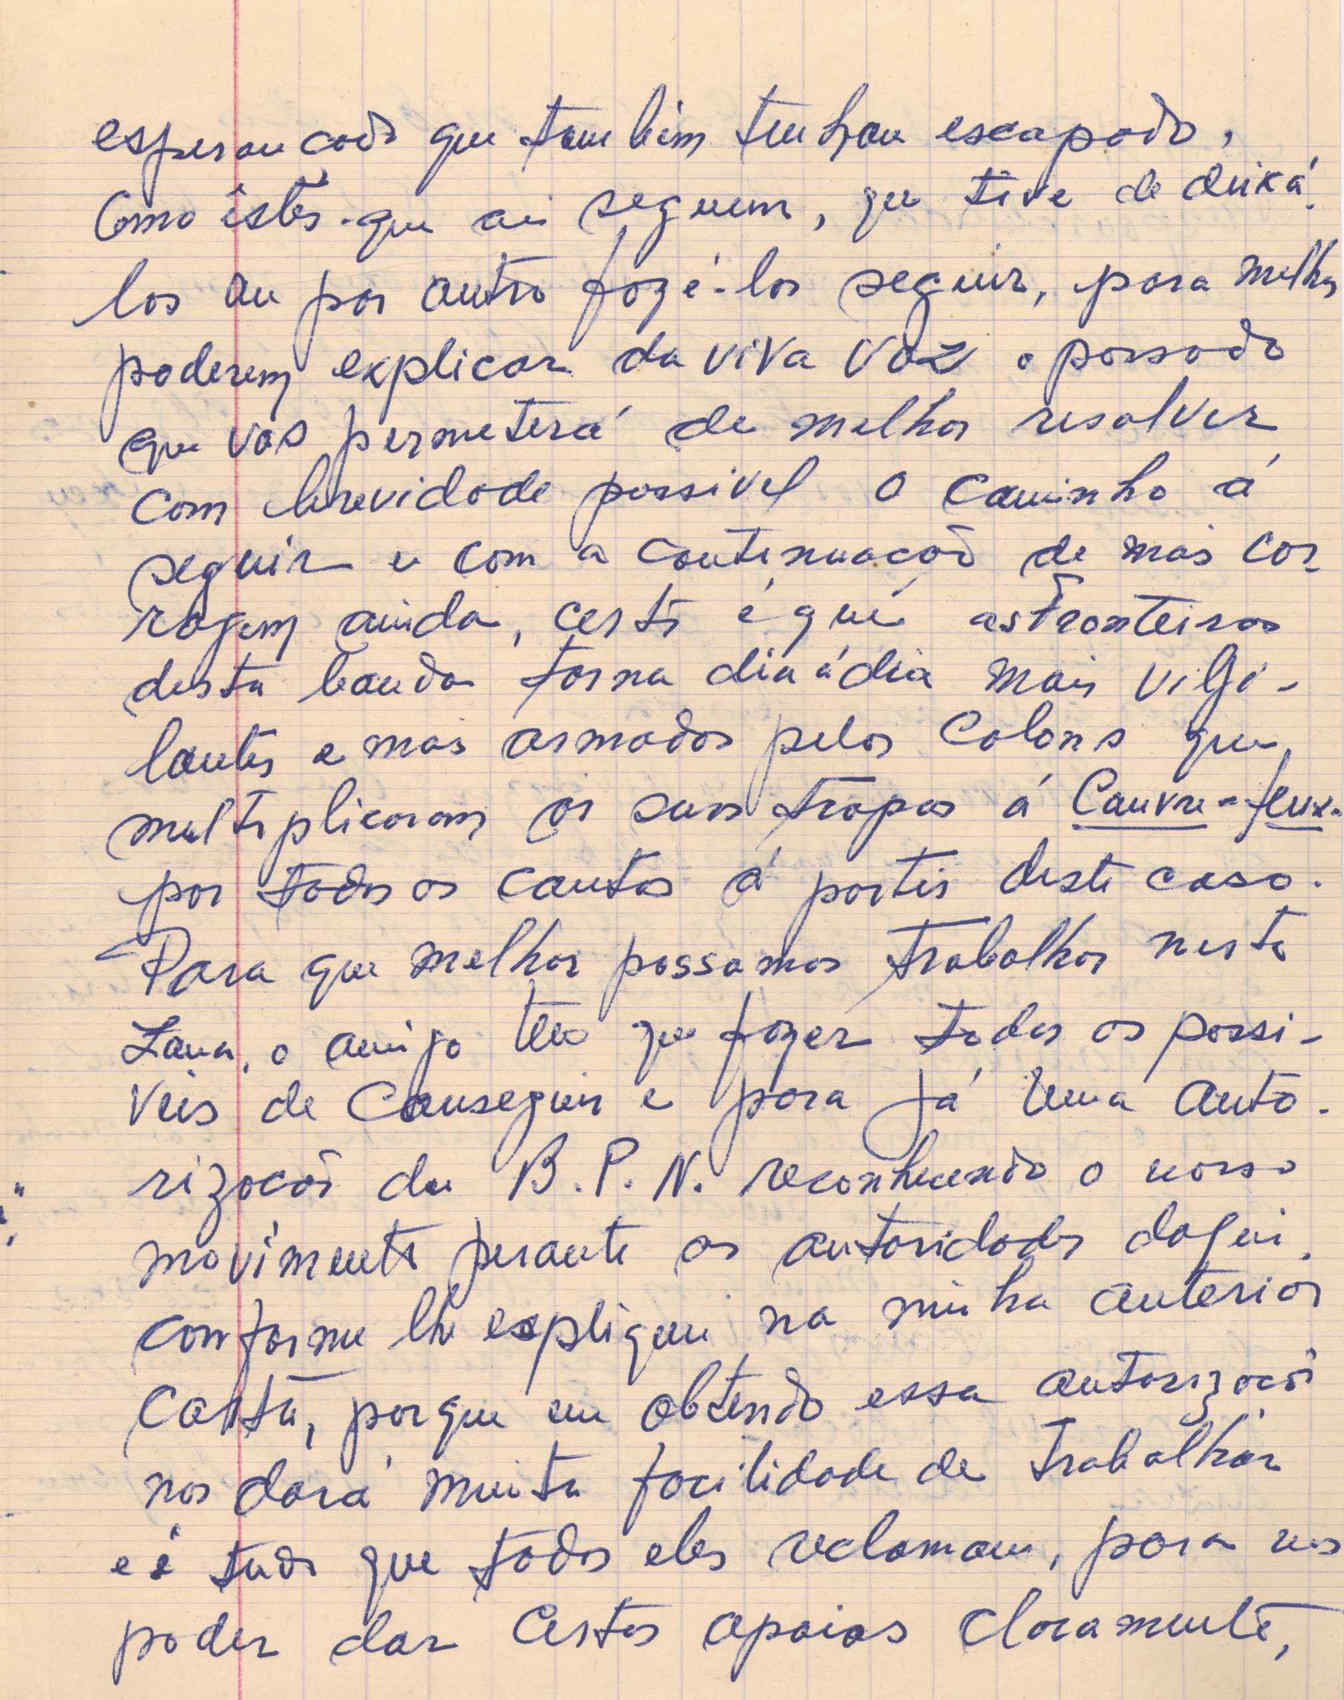 esperançado que tambêm tenham escapado,
Como êstes que ai seguem, que tive de deixá-
los ou por outro fazé-los seguir, para melhor
poderem explicar da viva voz o passado
que vos permeterá de melhor resolver
com brevidade possivel o caminho á
seguir e com a contenuacaõ de mais co-
ragem ainda, certo é que as fronteiras
desta banda torna dia á dia mais vigi-
lantes e mais armados pelos Colons que
multiplicaram as suas tropas á Couvre-feux.
por todos os cantos á partir deste caso.
Para que melhor possamos trabalhar nesta
Zona, o amigo tem que fazer todos os possi-
veis de Conseguir e para já uma auto-
rizacaõ du B.P.N. reconhecendo o nosso
movimento perante as autoridades daqui,
conforme lhe expliquei na minha anterior
Carta, porque em obtendo essa autorizacaõ
nos dará muita facilidade de trabalhar
e é tudo que todos eles reclamam, para nos
poder dar Certos apoios claramente,